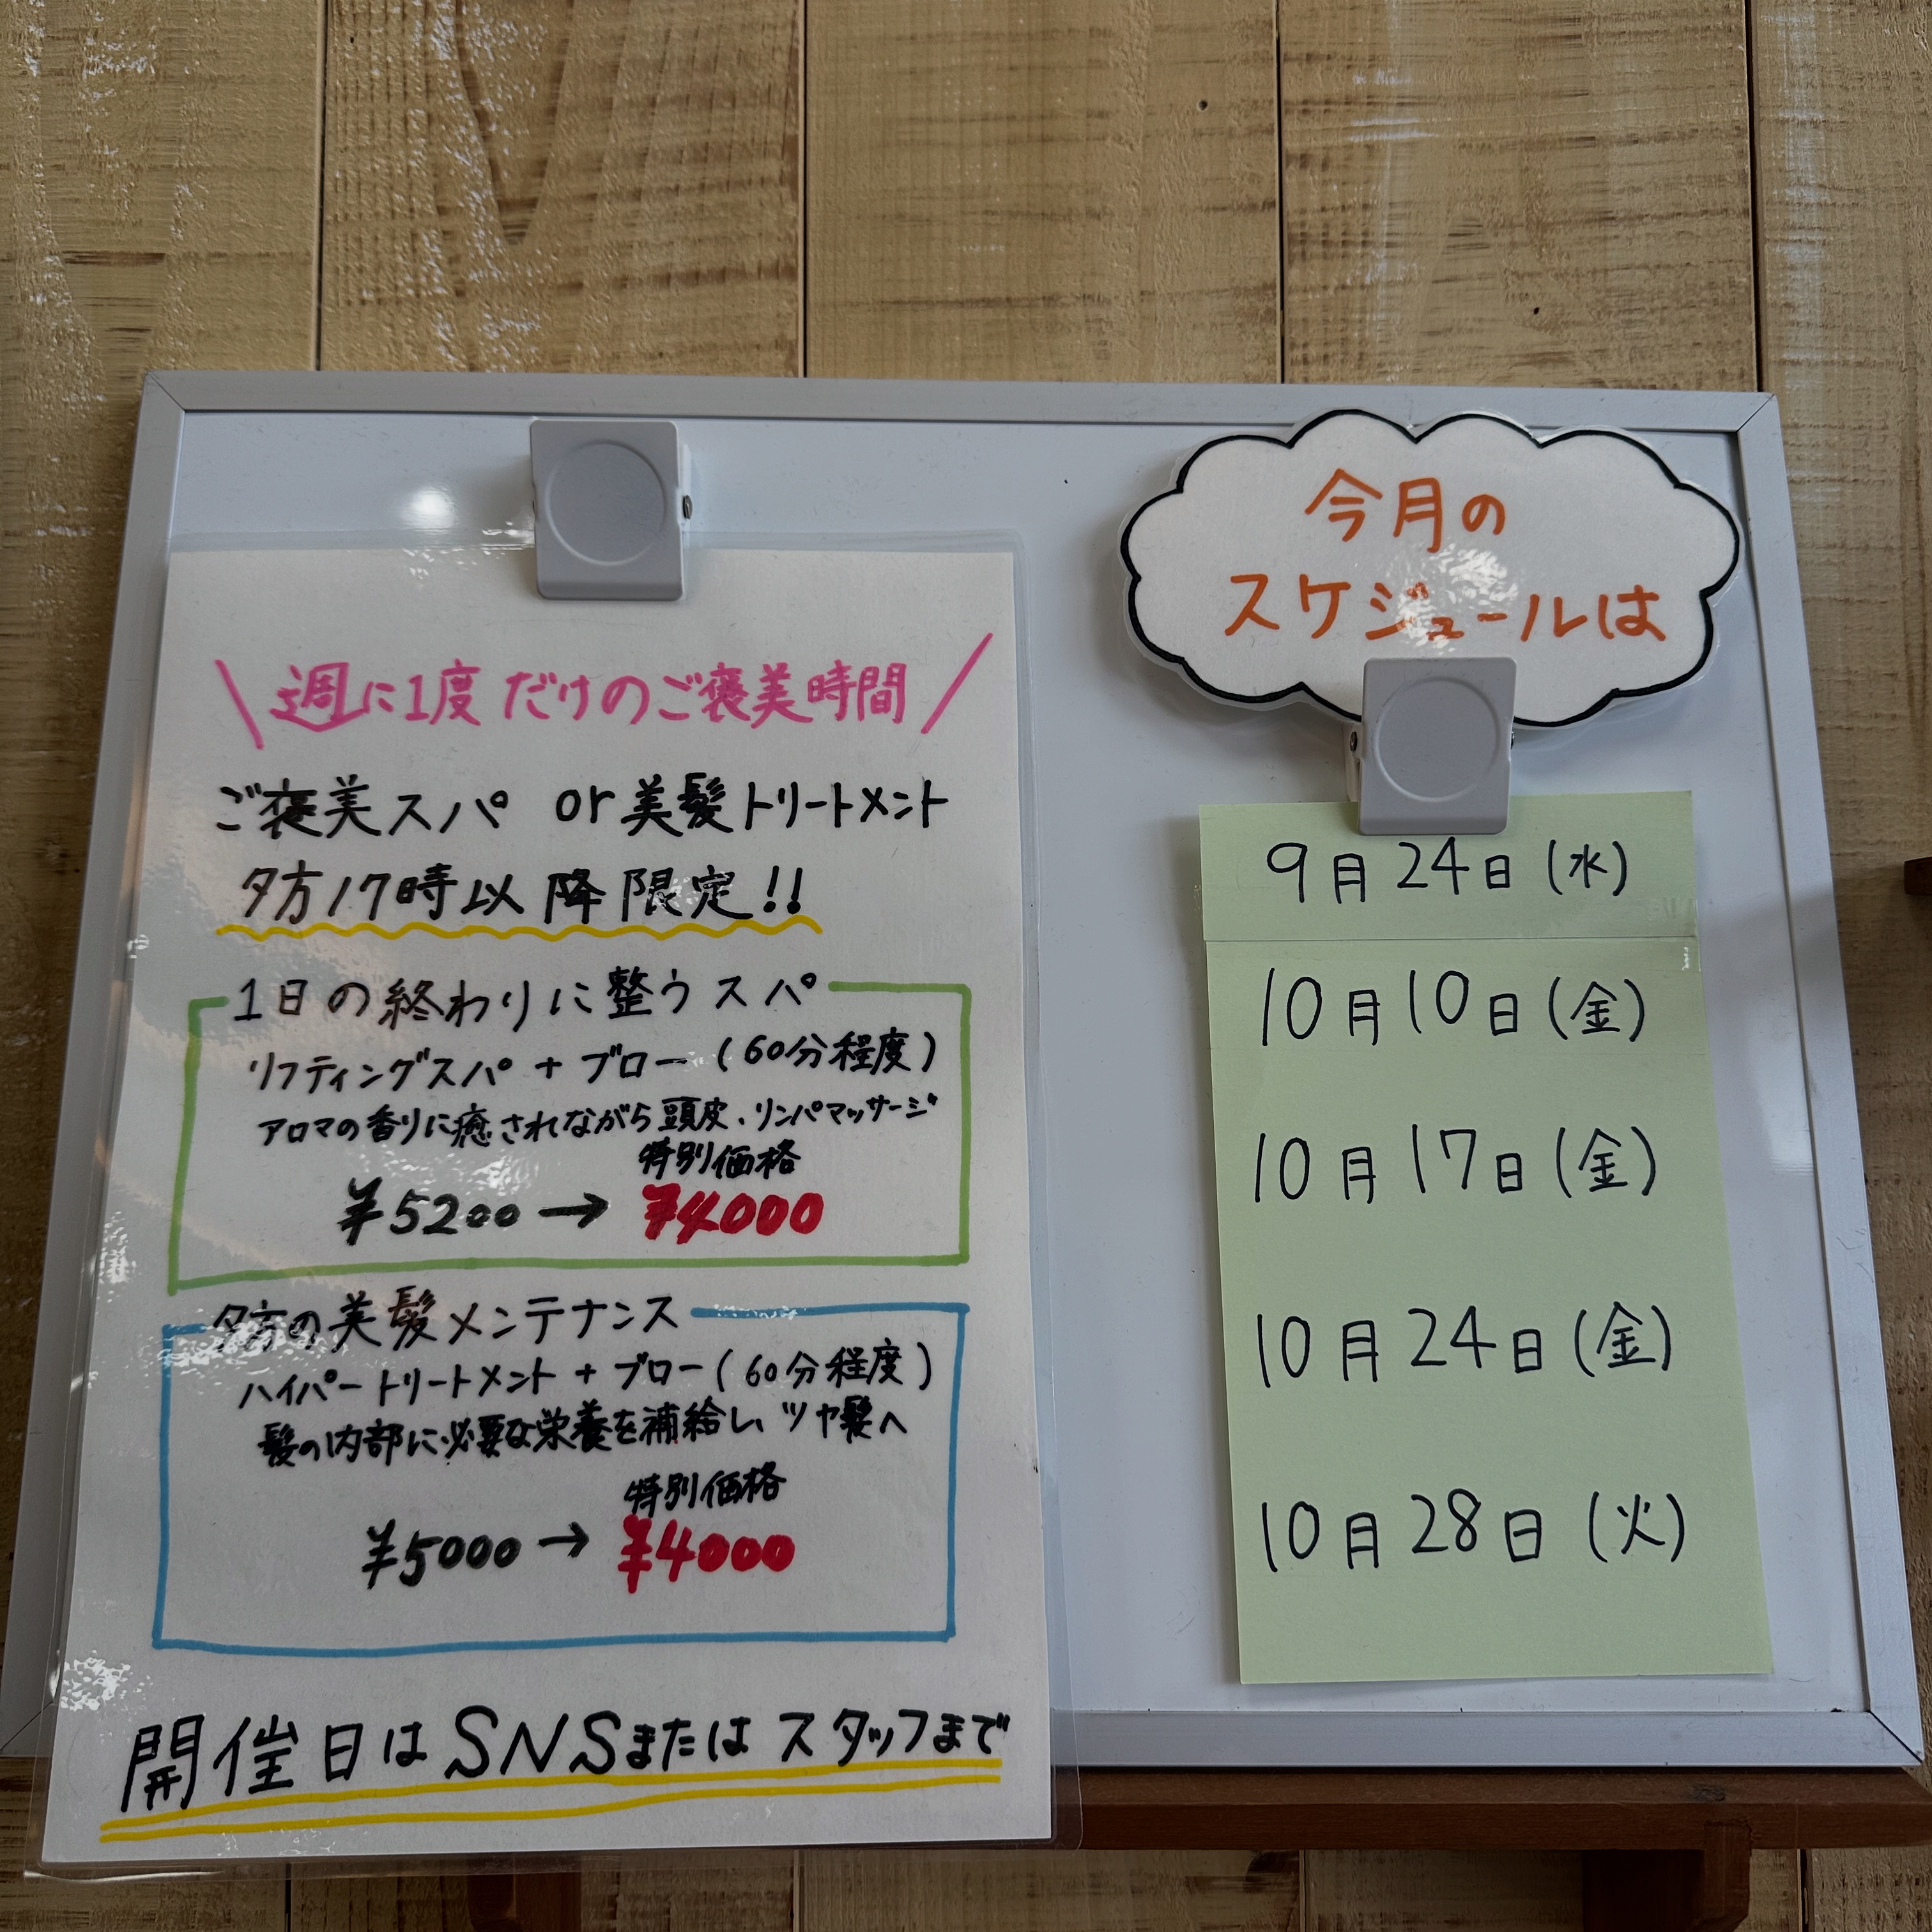 週に1度だけのご褒美時間
ご褒美スパ or 美髪トリートメント
夕方17時以降限定!!
1日の終わりに整うスパ
リフティングスパ + ブロー (60分程度)
アロマの香りに癒されながら頭皮、リンパマッサージ
特別価格
¥5200 → ¥4000
夕方の美髪メンテナンス
ハイパートリートメント + ブロー (60分程度)
髪の内部に必要な栄養を補給し、ツヤ髪へ
特別価格
¥5000 → ¥4000
開催日はSNSまたはスタッフまで
今月の
スケジュールは
9月24日(水)
10月10日(金)
10月17日(金)
10月24日(金)
10月28日(火)